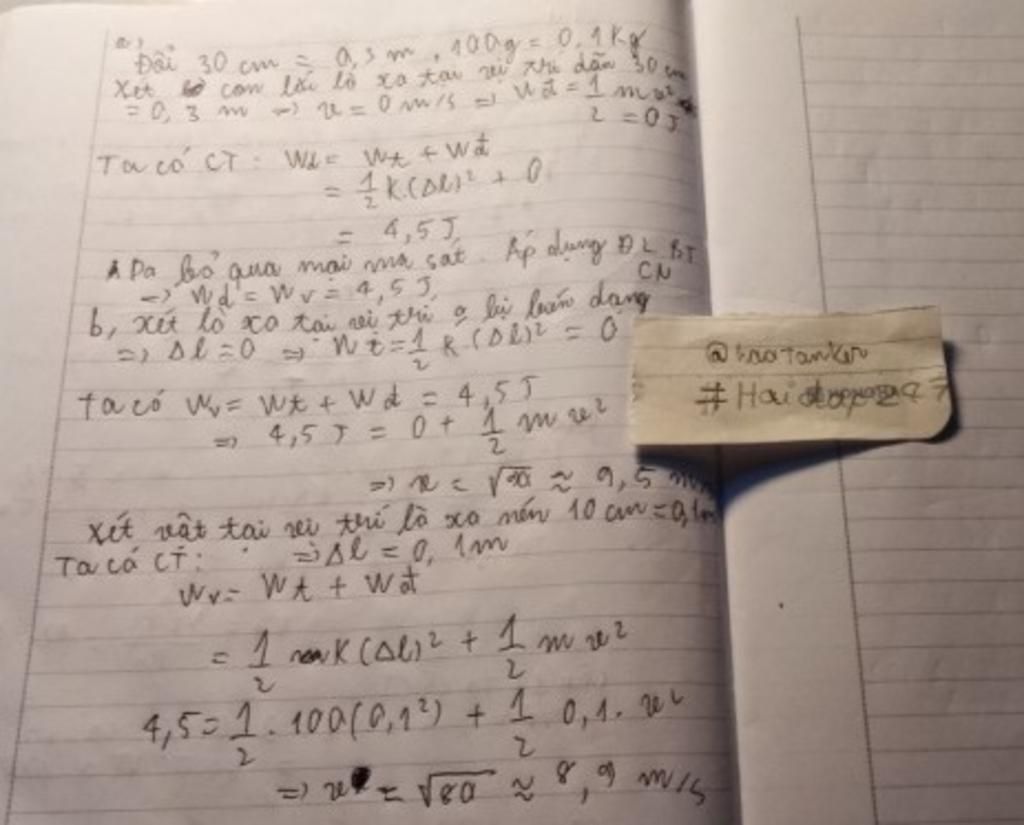 a)
Đổi 30 cm = 0,3 m, 100g = 0,1 Kg
Xét con lắc lò xo tại vị trí dãn 30 cm
= 0,3 m => v = 0 m/s => Wđ = 1/2 m v² = 0J
Ta có CT: Wd = Wt + Wđ
= 1/2 K.(Δl)² + 0
= 4,5 J
Da bỏ qua mọi ma sát. Áp dụng ĐL BT CN
=> Wd = Wv = 4,5 J
b, xét lò xo tại vị trí biến dạng
=> Δl = 0 => Wt = 1/2 K (Δl)² = 0
Ta có Wv = Wt + Wđ = 4,5 J
=> 4,5 J = 0 + 1/2 m v²
=> v = √90 ≈ 9,5 m/s
Xét vật tại vị trí lò xo nén 10 cm = 0,1m
Ta có CT: => Δl = 0,1m
Wv = Wt + Wđ
= 1/2 K (Δl)² + 1/2 m v²
4,5 = 1/2 . 100(0,1²) + 1/2 0,1. v²
=> v = √80 ≈ 8,9 m/s